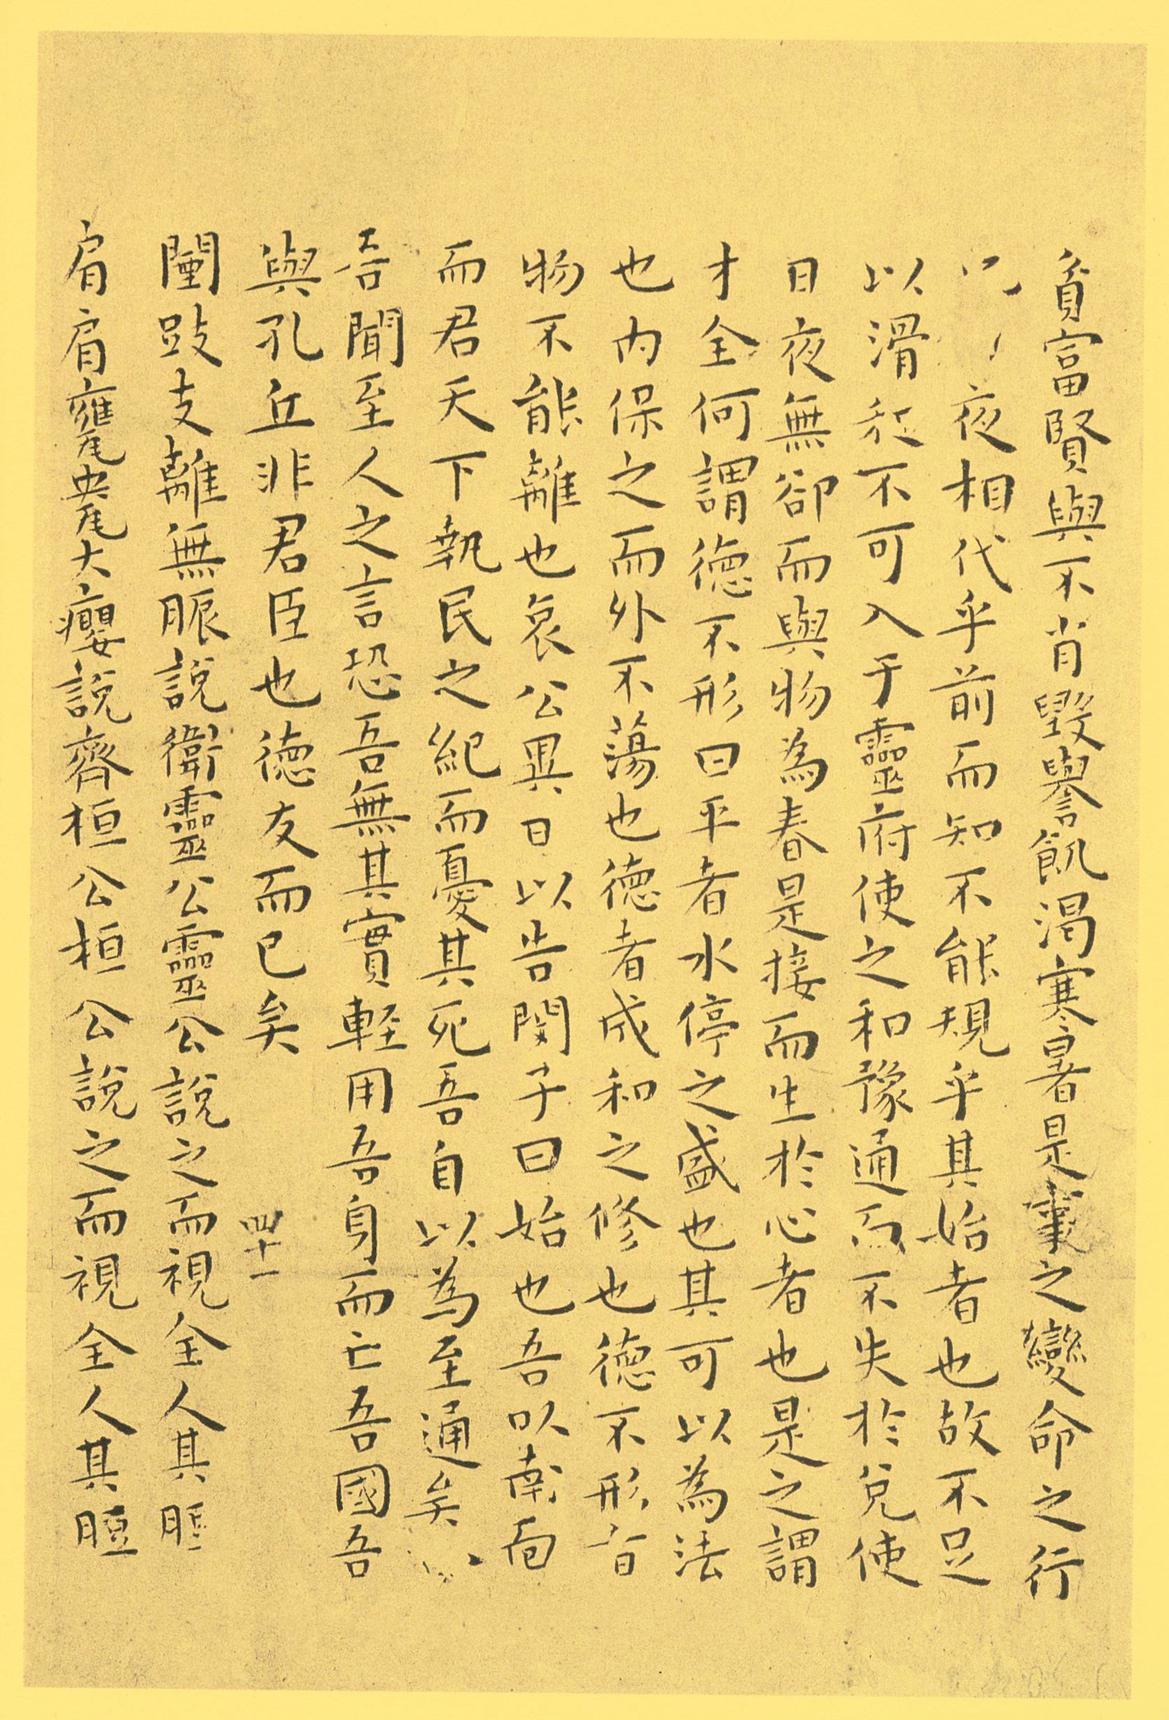 貧富賢與不肖毀譽飢渴寒暑是事之變命之行
夜相代乎前而知不能規乎其始者也故不足
以滑和不可入于靈府使之和豫通而不失於兌使
日夜無郤而與物為春是接而生於心者也是之謂
才全何謂德不形曰平者水停之盛也其可以為法
也內保之而外不蕩也德者成和之修也德不形者
物不能離也哀公異日以告閔子曰始也吾以南面
而君天下執民之紀而憂其死吾自以為至通矣
吾聞至人之言恐吾無其實輕用吾身而亡吾國吾
與孔丘非君臣也德友而已矣 四十一
闉跂支離無脤說衛靈公靈公說之而視全人其脰
肩肩甕㼜大癭說齊桓公桓公說之而視全人其脰